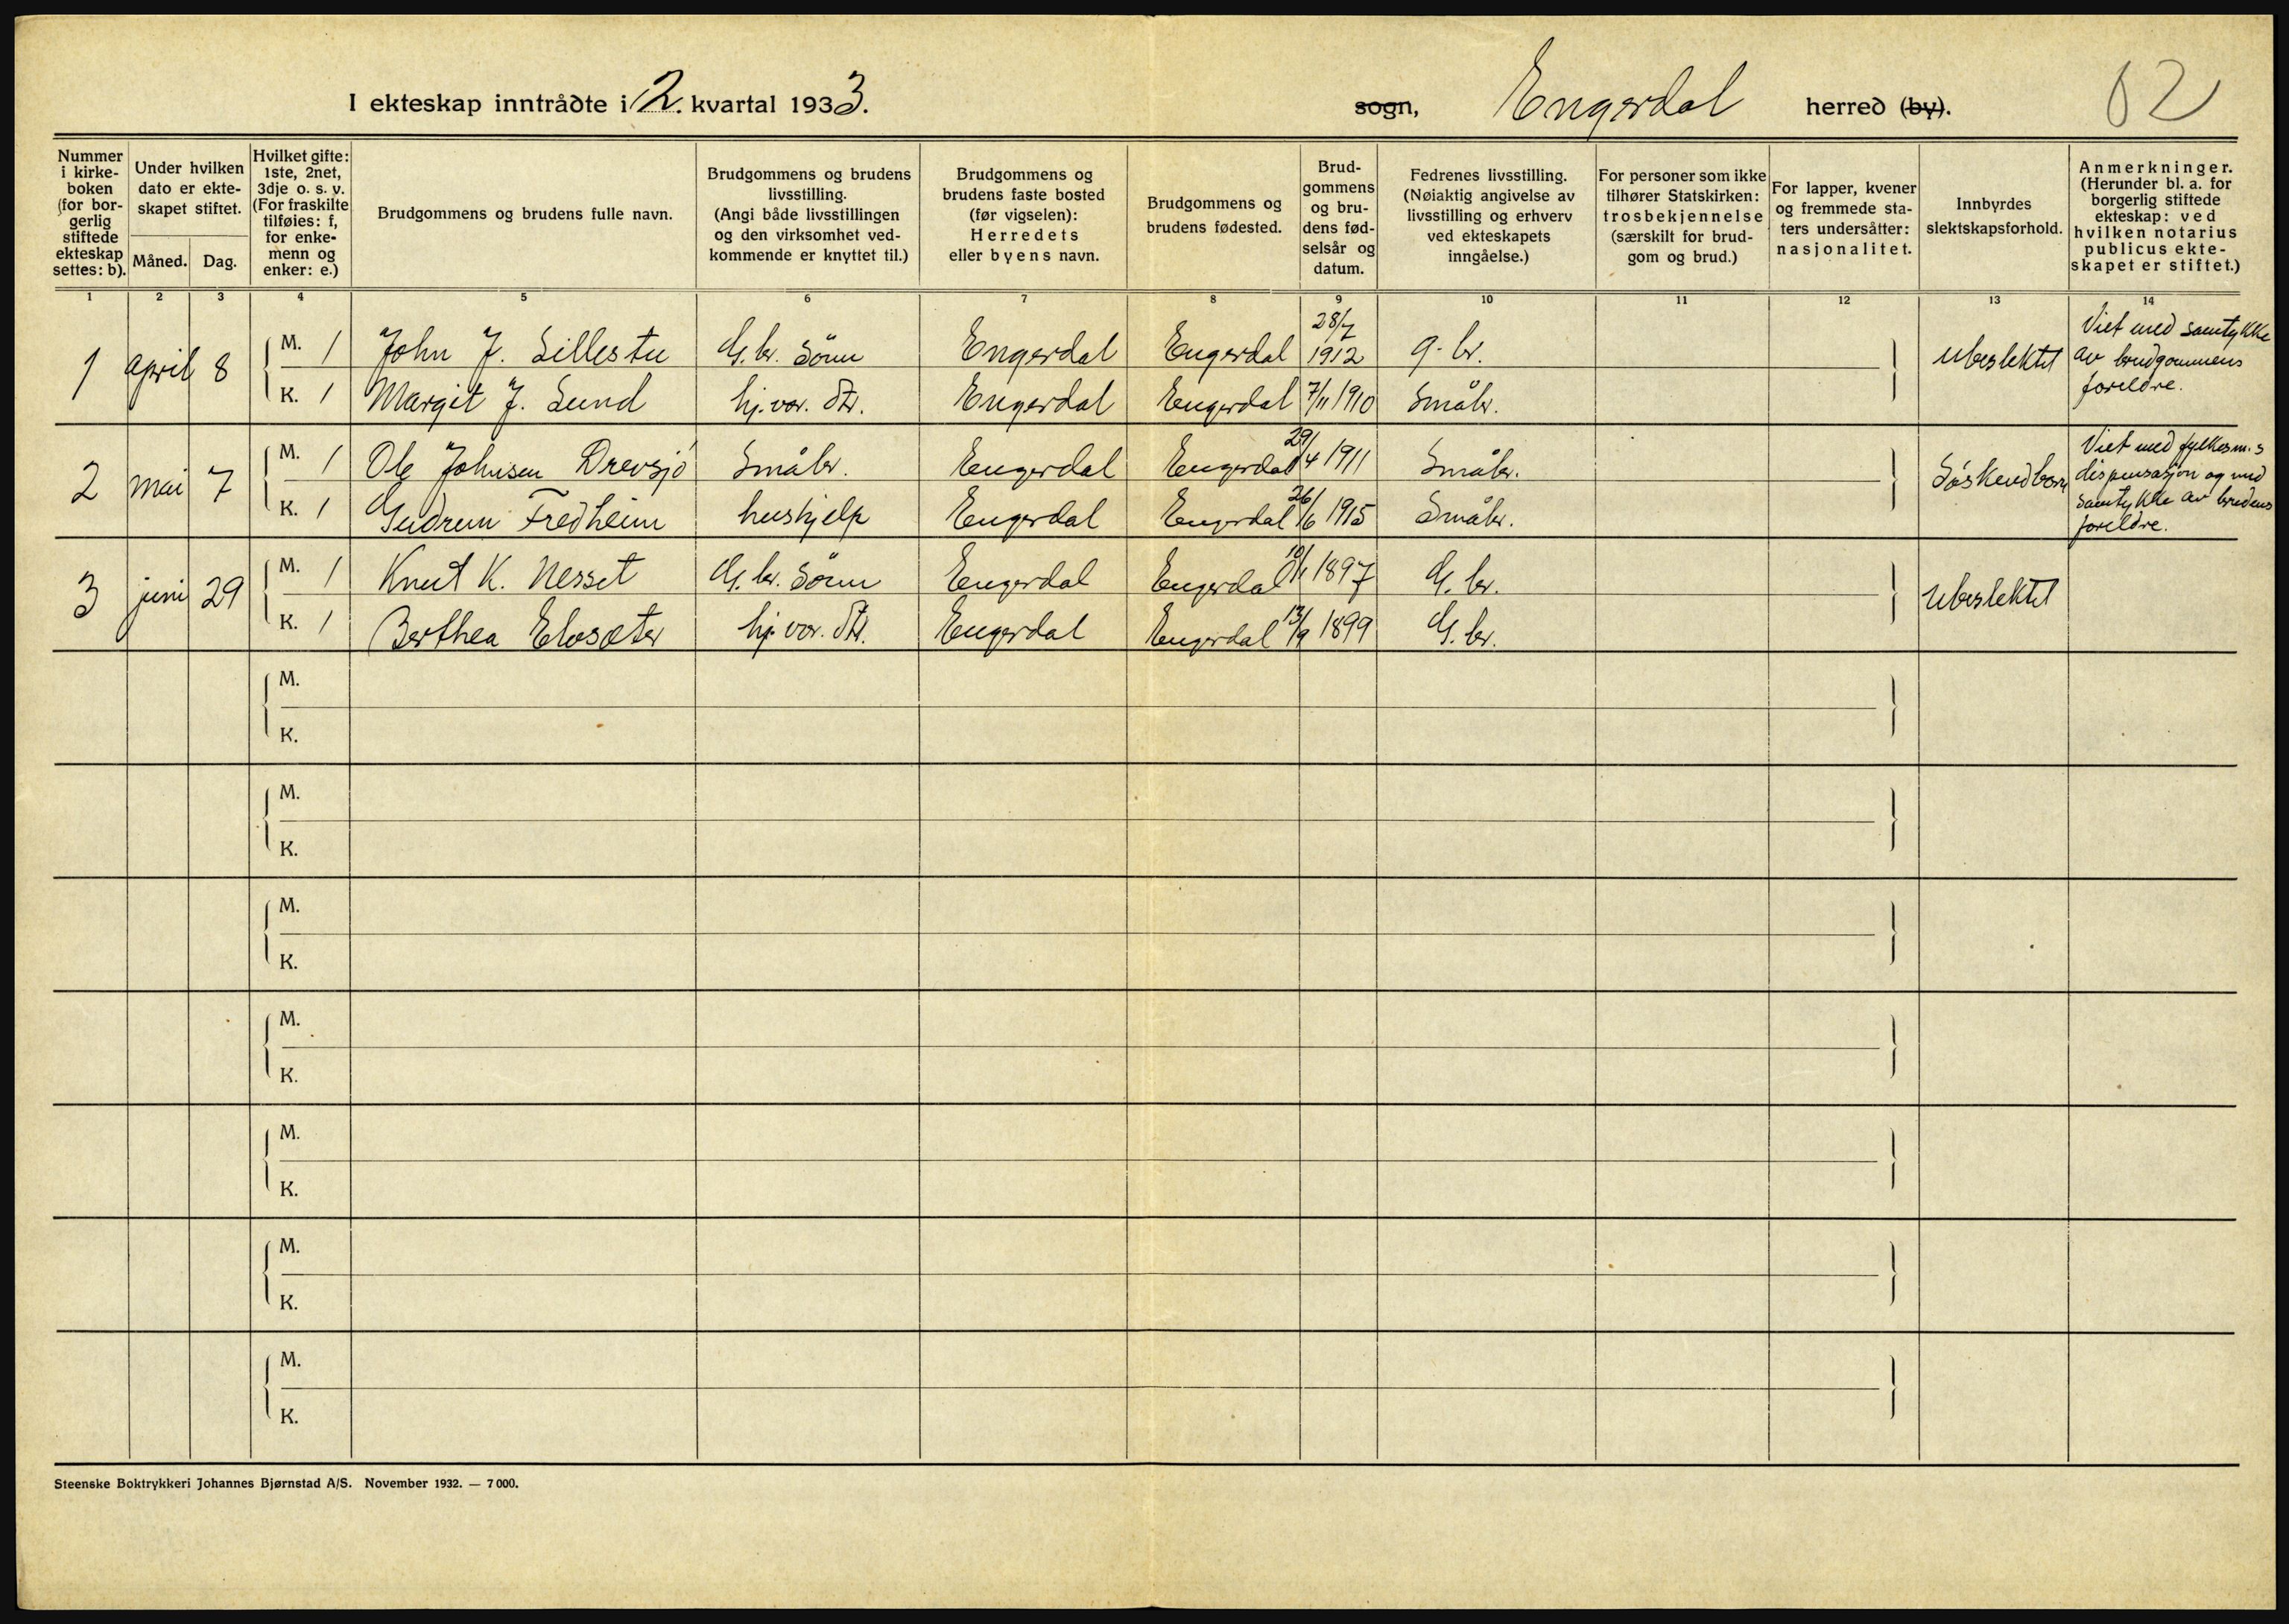 I ekteskap inntrådte i 2. kvartal 1933.
sogn, Engerdal herred (by).
62
Nummer i kirkeboken (for borgerlig stiftede ekteskap settes: b).
Under hvilken dato er ekteskapet stiftet.
Måned. Dag.
Hvilket gifte: 1ste, 2net, 3dje o. s. v. (For fraskilte tilføies: f, for enkemenn og enker: e.)
Brudgommens og brudens fulle navn.
Brudgommens og brudens livsstilling. (Angi både livsstillingen og den virksomhet vedkommende er knyttet til.)
Brudgommens og brudens faste bosted (før vigselen): Herredets eller byens navn.
Brudgommens og brudens fødested.
Brudgommens og brudens fødselsår og datum.
Fedrenes livsstilling. (Nøiaktig angivelse av livsstilling og erhverv ved ekteskapets inngåelse.)
For personer som ikke tilhører Statskirken: trosbekjennelse (særskilt for brudgom og brud.)
For lapper, kvener og fremmede staters undersåtter: nasjonalitet.
Innbyrdes slektskapsforhold.
Anmerkninger. (Herunder bl. a. for borgerlig stiftede ekteskap: ved hvilken notarius publicus ekteskapet er stiftet.)
1 2 3 4 5 6 7 8 9 10 11 12 13 14
1 april 8 M. 1 John J. Sillestu G. br. sønn Engerdal Engerdal 28/7 1912 g. br. Ubeslektet Viet med samtykke av brudgommens foreldre.
K. 1 Margit J. Lund hj. vær. dtr. Engerdal Engerdal 7/11 1910 Småbr.
2 mai 7 M. 1 Ole Johnsen Drevsjö Småbr. Engerdal Engerdal 29/4 1911 Småbr. Søskendbarn Viet med fylkesm.s dispensasjon og med samtykke av brudens foreldre.
K. 1 Gudrun Fredheim hushjelp Engerdal Engerdal 26/6 1915 Småbr.
3 juni 29 M. 1 Knut K. Nesset G. br. sønn Engerdal Engerdal 10/1 1897 G. br. Ubeslektet
K. 1 Berthea Elvsæter hj. vær. dtr. Engerdal Engerdal 13/9 1899 G. br.
M.
K.
M.
K.
M.
K.
M.
K.
M.
K.
M.
K.
M.
K.
Steenske Boktrykkeri Johannes Bjørnstad A/S. November 1932. — 7 000.